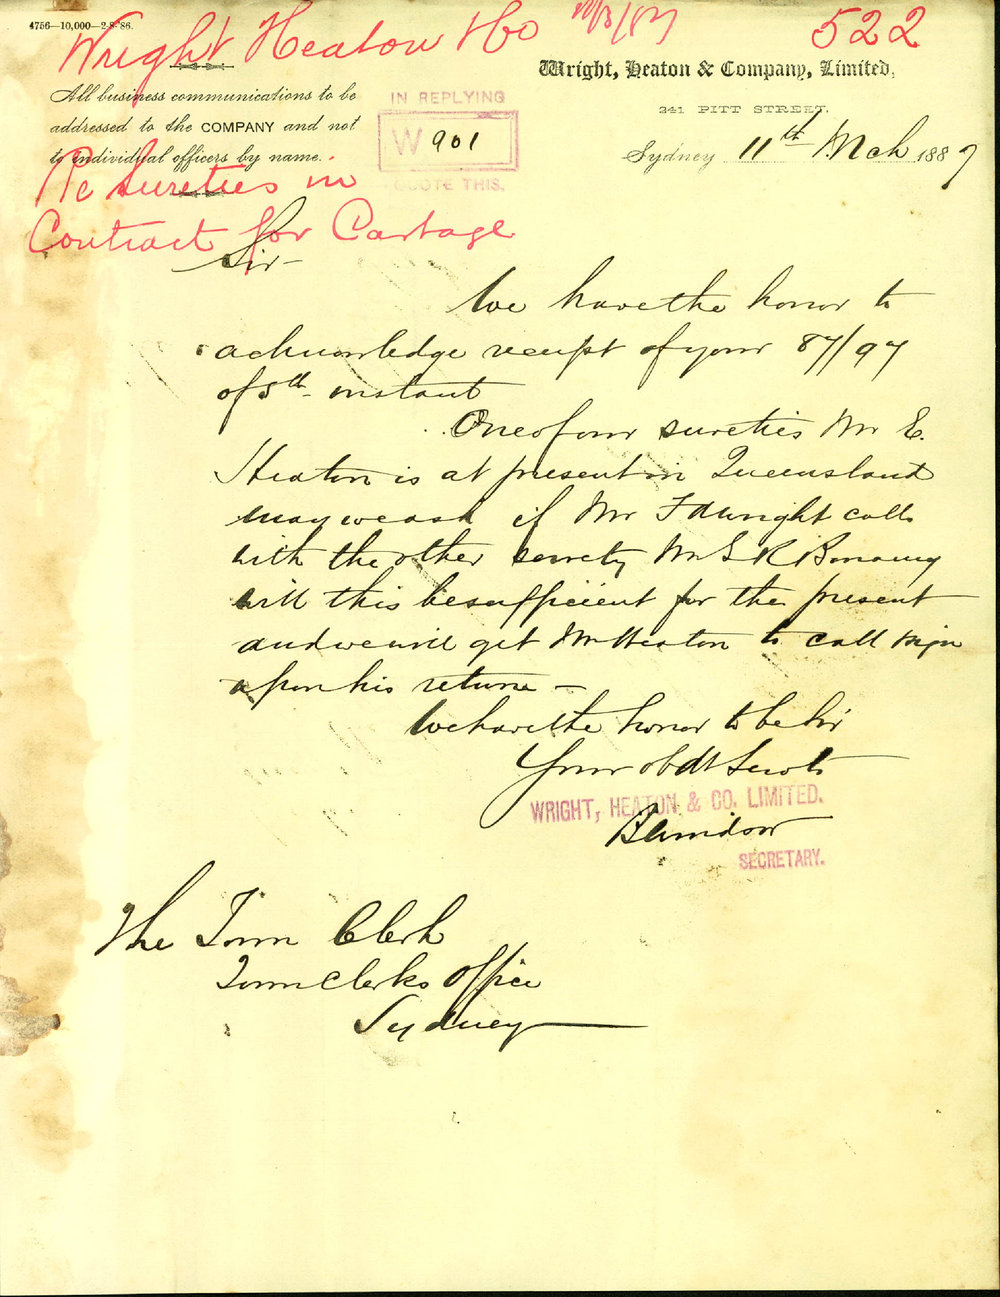 4756—10,000—2-8-'86.
Wright Heaton & Co
522
Wright, Heaton & Company, Limited,
241 PITT STREET,
Sydney 11th Mch 1887
All business communications to be
addressed to the COMPANY and not
to individual officers by name.
IN REPLYING
W 901
QUOTE THIS.
Re Sureties in
Contract for Cartage
Sir
We have the honor to
acknowledge receipt of your 87/97
of 8th instant
One of our sureties Mr E.
Heaton is at present in Queensland
may we ask if Mr F A Wright calls
with the other surety Mr
will this be sufficient for the present
and we will get Mr Heaton to call sign
upon his return —
We have the honor to be Sir
Your obdt Servts
WRIGHT, HEATON & CO. LIMITED.
SECRETARY.
The Town Clerk
Town Clerks Office
Sydney